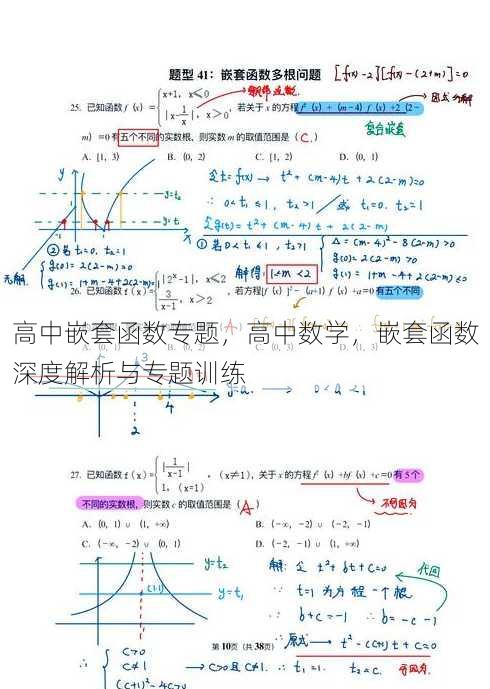 题型 41：嵌套函数多根问题 [f(x)-2][f(x)-(2-m)]=0
25. 已知函数 f (x) = { x+1, x≤0
|x-1/x|, x>0 ，若关于 x 的方程 f² (x) + (m-4) f (x) +2 (2-
m) =0 有五个不同的实数根，则实数 m 的取值范围是（ C ）
A. [1, 3) B. (0, 2) C. [1, 2) D. (0, 1)
y=t₂
y=t₁
令t=f(x) → t²+(m-4)t+2(2-m)=0
∴ 0<t₁≤1, t₂>1 或 t₁=0. t₂=1
令g(t)=t²+(m-4)t+2(2-m)
①若0<t₁≤1, t₂>1
Δ=(m-4)²-8(2-m)>0
g(0)=2(2-m)>0
g(1)=1+m-4+2(2-m)≤0
②若t₁=0. t₂=1
g(0)=2(2-m)=0
g(1)=1+m-4+2(2-m)=0
无解.
解得: 1≤m<2
26. 已知函数 f (x) = { |2ˣ-1|, x≤2
3/x-1, x>2 ，若方程[f (x) ]²- (a+1) f (x) +a=0 有五个不同
高中嵌套函数专题，高中数学，嵌套函数
深度解析与专题训练
y=a.
0<a<1
27. 已知函数 f ( x ) = { 1/|x-1|
1, (x=1) ，(x≠1)，关于 x 的方程 f² (x) +bf (x) +c=0 有 5 个
不同的实数根，则实数 c 的取值范围是（ A ）
A. (0, 1) ∪ (1, +∞) B. (-∞, -2) ∪ (-2, -1)
C. (-∞, -2) ∪ (0, 1) D. (-2, -1) ∪ (1, +∞)
y=t₂
y=t₁
(1,1)
解: 令 t²+bt+c=0
∵ t=1 为方程一个根
∴ b+c=-1 ∴ b=-c-1
代回
第 10页（共 38页）
原式 → t²-(c+1)t+c=0
∴ { c>0
c≠1
(c+1)²-4c>0
→ c>0且c≠1.
∴ t₁=1. t₂=c.